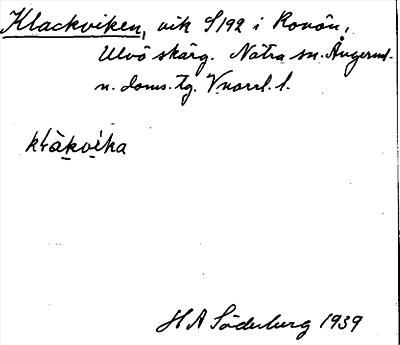 Klackviken, vik S192 i Ronön,
Ulvö skärg. Nätra sn. Ångerml.
n. doms. tg. Vnorrl. l.
kłàkvìka
H A Söderberg 1939